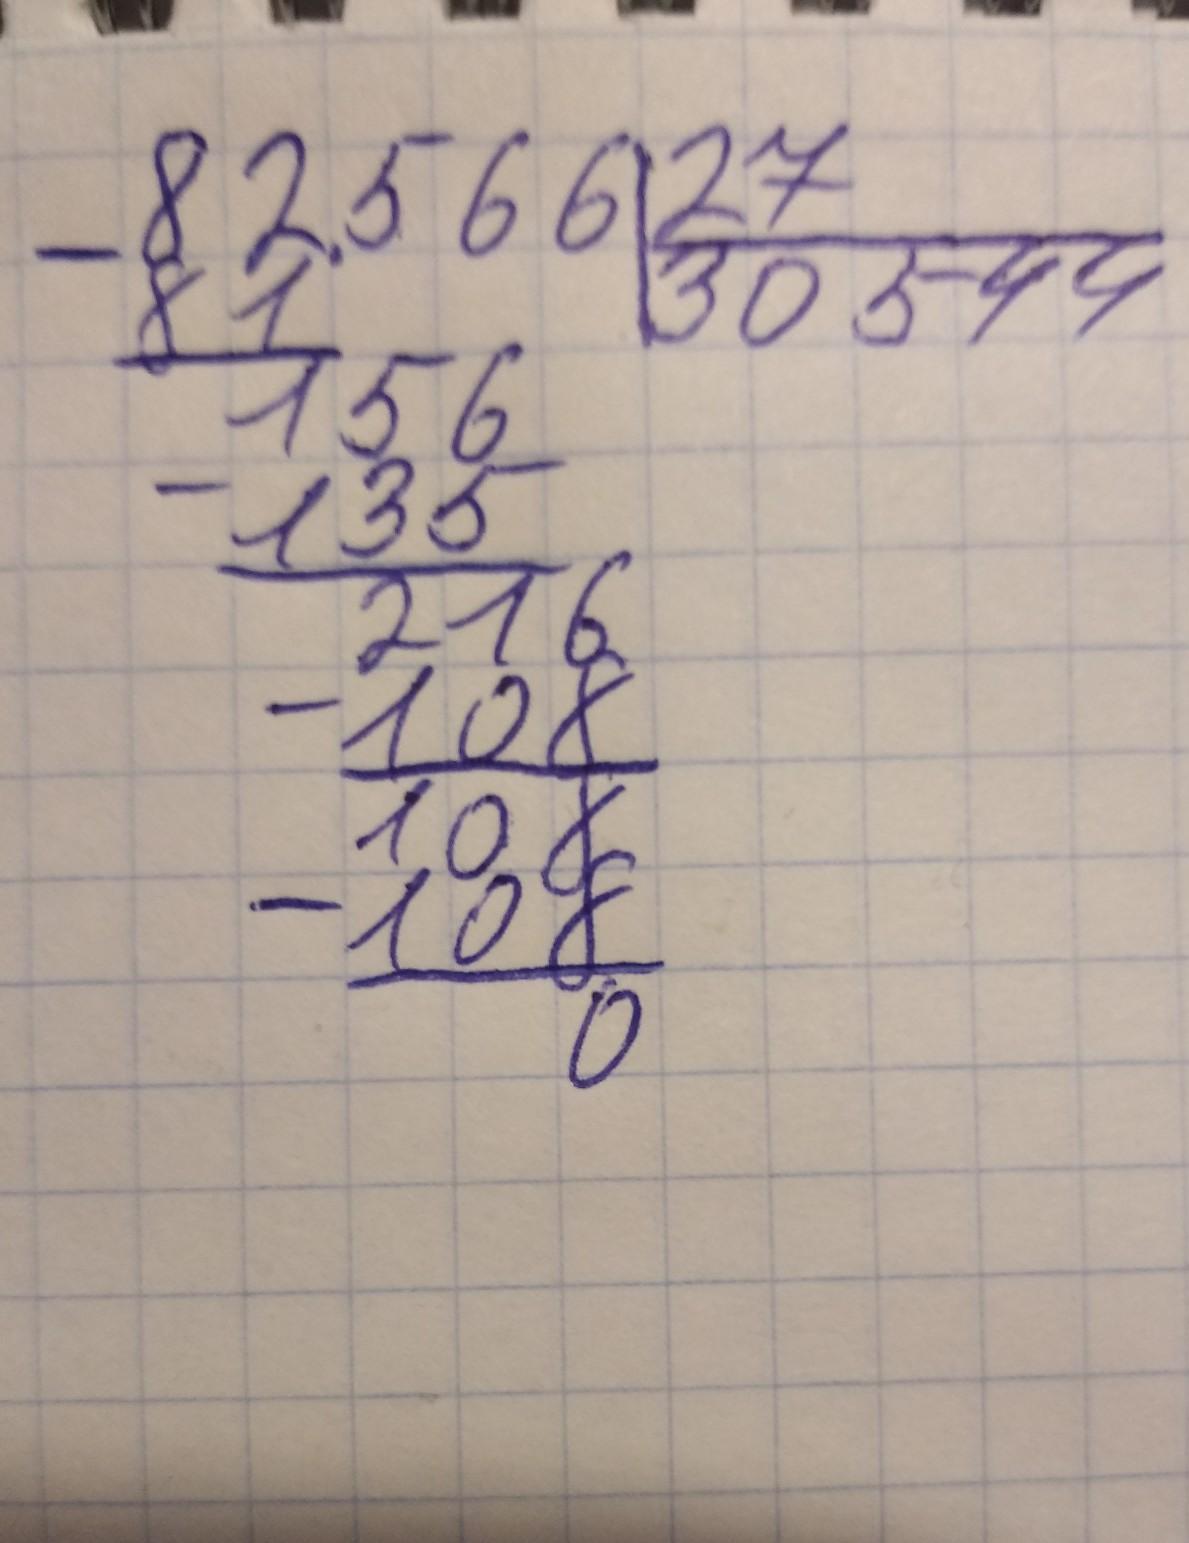 - 82.566 | 27
81 | 30544
156
- 135
216
- 108
108
- 108
0